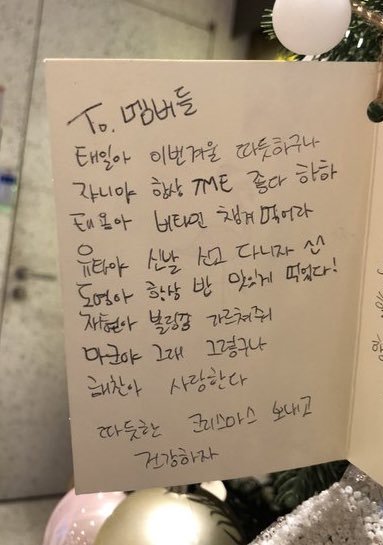 To. 멤버들
태일아 이번겨울 따듯하구나
쟈니야 항상 TME 좋다 하하
태용아 비타민 챙겨 먹어라
유타야 신발 신고 다니자
도영아 항상 밥 맛있게 먹었다!
재현아 볼링장 가르쳐줘
마크야 그래 그렇구나
해찬아 사랑한다
따듯한 크리스마스 보내고
건강하자